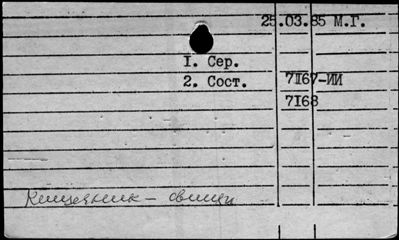 25.03.85 М.Г.
1. Сер.
2. Сост. 7167-ИИ
7168